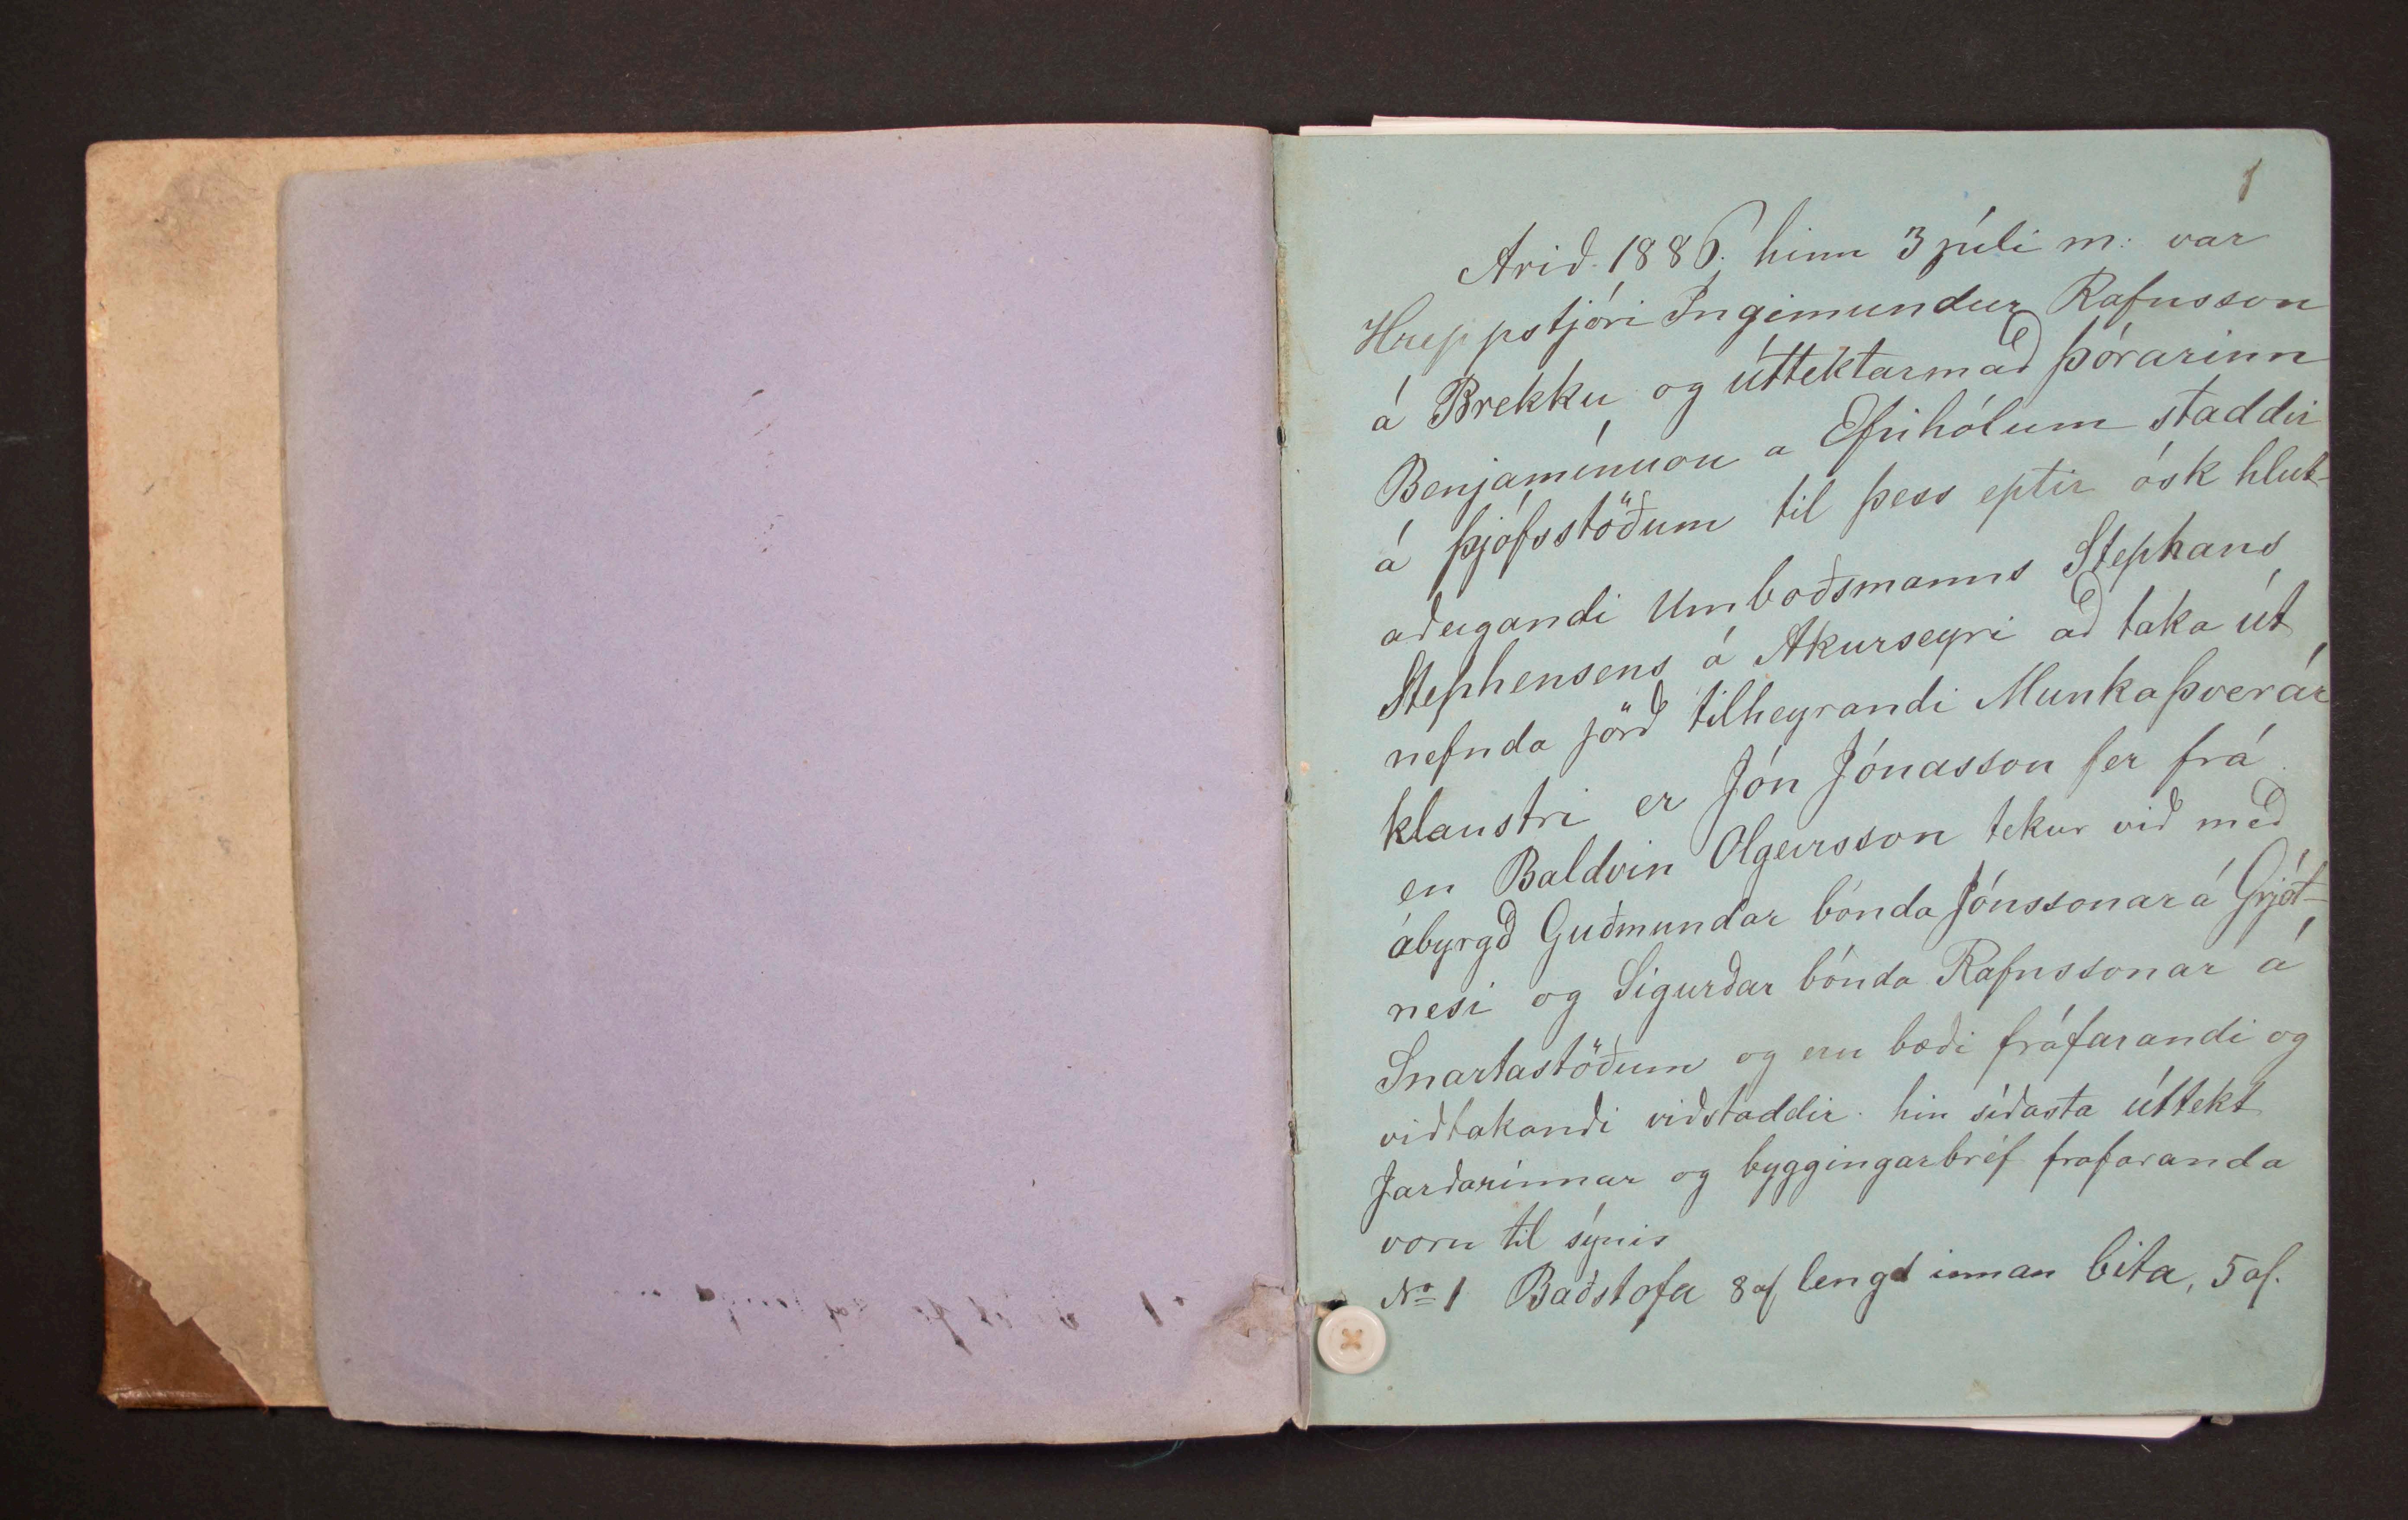 1
Arið. 1886. hinn 3 júli m: var
Hreppstjóri Ingimundur Rafnsson
á Brekku og úttektarmað Þórarinn
Benjamínuon a Efrihólum staddir
á Þjófsstöðum til þess eptir ósk hlut-
aðeigandi Umboðsmanns Stephans
Stephensens á Akurseyri að taka út
nefnda jörð tilheyrandi Munkaþverár
klaustri er Jón Jónasson fer frá.
en Baldvin Olgeirsson tekur við með
ábyrgð Guðmundar bónda Jónssonar á Grjót-
nesi og Sigurðar bónda Rafnssonar á
Snartastöðum og eru bæði fráfarandi og
viðtakandi viðstaddir. hin síðasta úttekt
Jarðarinnar og byggingarbréf frafaranda
voru til sýnis
No 1 Baðstofa 8 al lengd innan bita, 5 al.